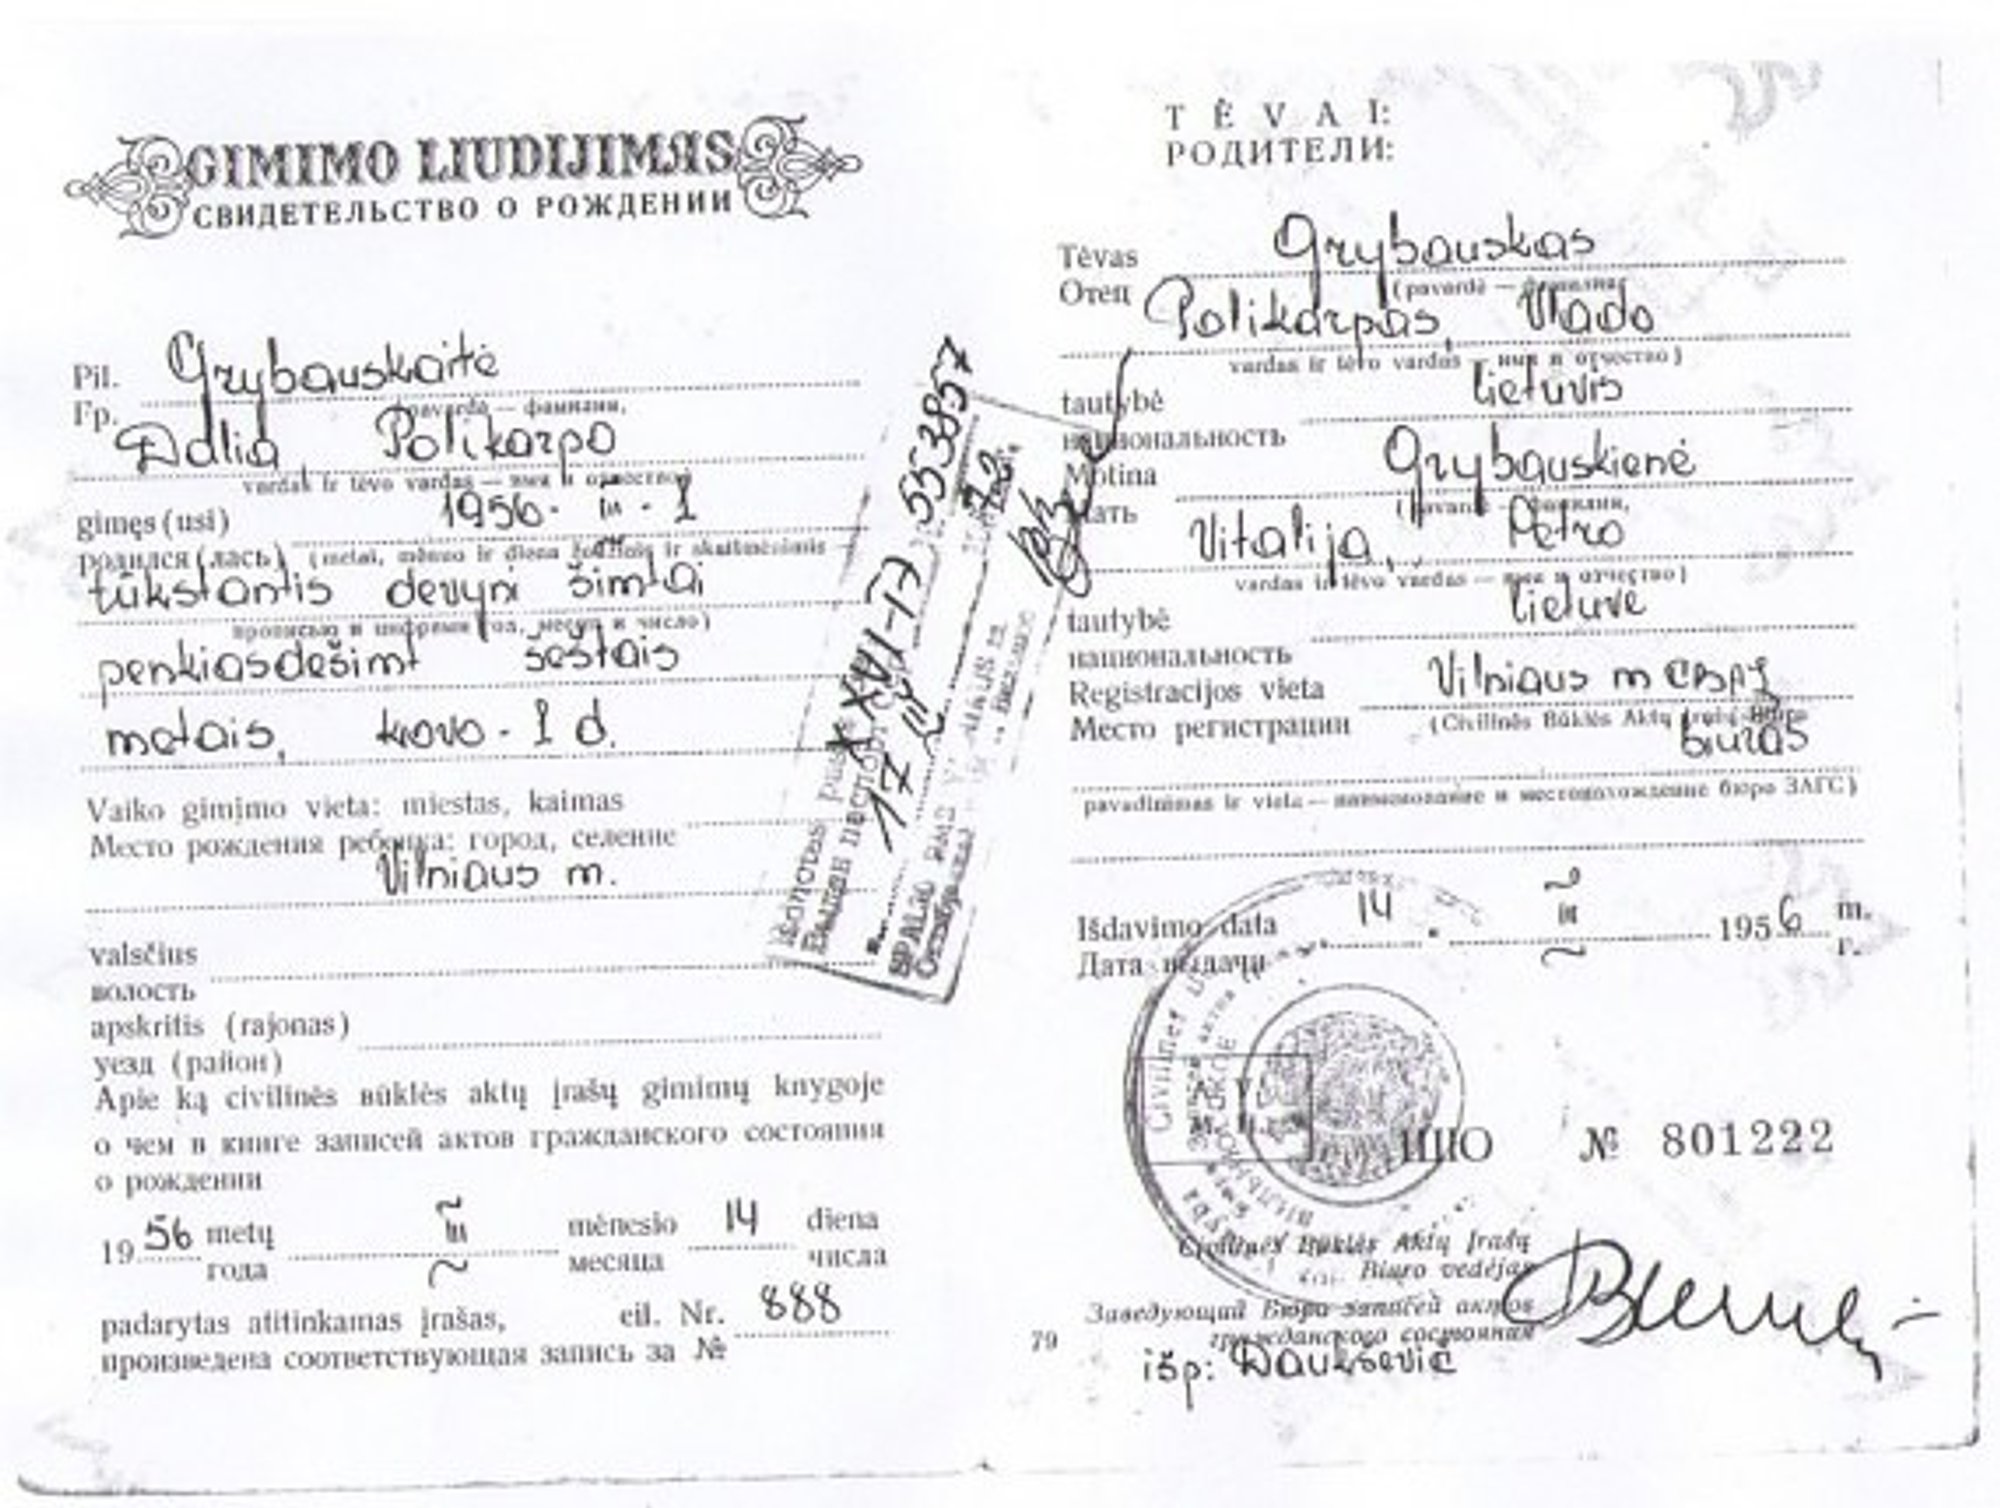 GIMIMO LIUDIJIMAS
СВИДЕТЕЛЬСТВО О РОЖДЕНИИ
Pil. Grybauskaitė
Гр. pavardė — фамилия,
Dalia, Polikarpo
vardas ir tėvo vardas — имя и отчество)
gimęs (usi) 1956 - III - 1
родился (лась) (metai, mėnuo ir diena žodžiais ir skaitmenimis
tūkstantis devyni šimtai
прописью и цифрами год, месяц и число)
penkiasdešimt šeštais
metais, kovo - 1 d.
Vaiko gimimo vieta: miestas, kaimas
Место рождения ребенка: город, селение
Vilniaus m.
valsčius
волость
apskritis (rajonas)
уезд (район)
Apie ką civilinės būklės aktų įrašų gimimų knygoje
о чем в книге записей актов гражданского состояния
о рождении
1956 metų III mėnesio 14 diena
года месяца числа
padarytas atitinkamas įrašas, eil. Nr. 888
произведена соответствующая запись за №
Išduotas pasas XXVI-ГЛ 553857
Выдан паспорт
17 III 72
SPALIO
TĖVAI:
РОДИТЕЛИ:
Tėvas Grybauskas
Отец (pavardė — фамилия
Polikarpas, Vlado
vardas ir tėvo vardas — имя и отчество)
tautybė lietuvis
национальность
Motina Grybauskienė
Мать (pavardė — фамилия,
Vitalija, Petro
vardas ir tėvo vardas — имя и отчество)
tautybė lietuvė
национальность
Registracijos vieta Vilniaus m CBAĮ
Место регистрации (Civilinės Būklės Aktų Įrašų Biuro
biuras
pavadinimas ir vieta — наименование и местонахождение бюро ЗАГС)
Išdavimo data 14 III 1956 m.
Дата выдачи г.
A. V.
М. П.
ЦПО № 801222
Civilinės Būklės Aktų Įrašų
Biuro vedėjas
Заведующий Бюро записей актов
гражданского состояния
79
išp: Daukševič